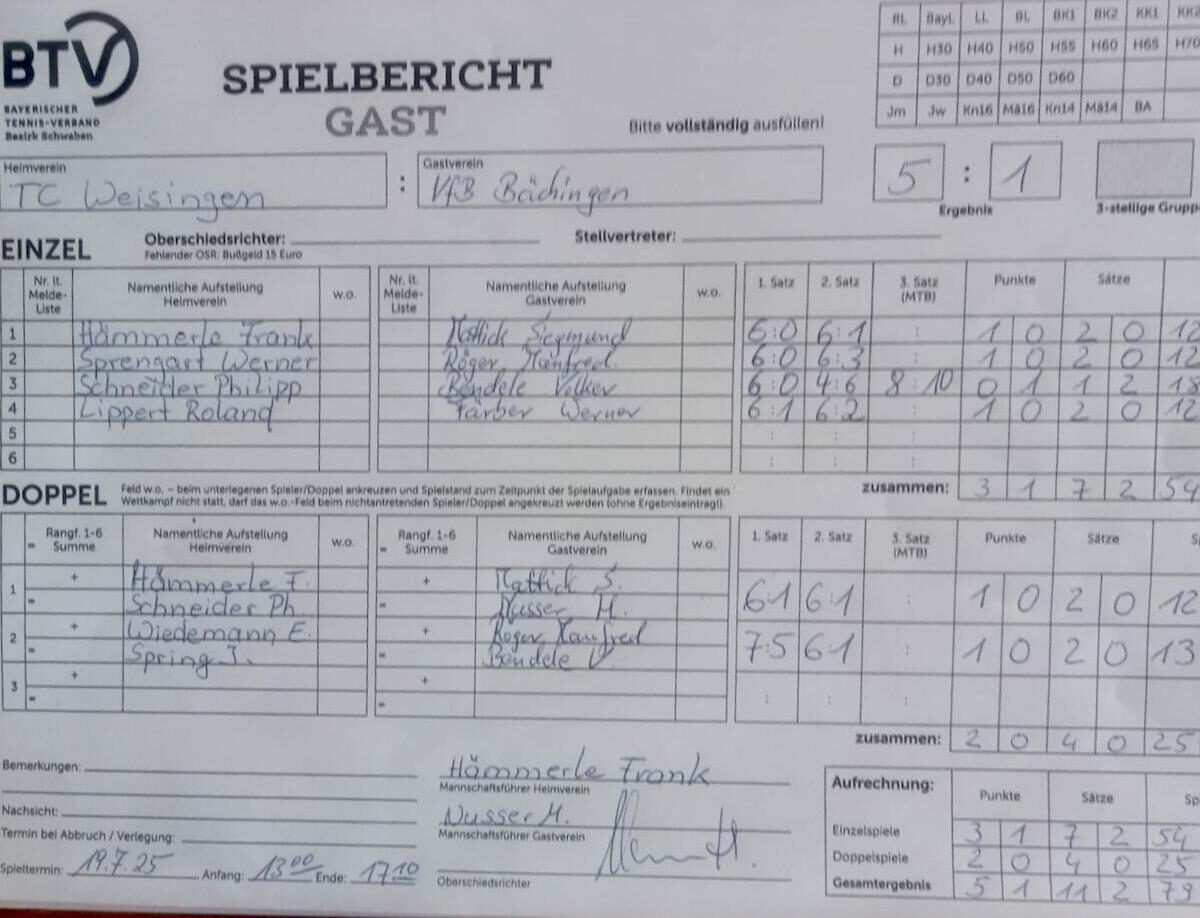 BTV
BAYERISCHER
TENNIS-VERBAND
Bezirk Schwaben
SPIELBERICHT
GAST
Bitte vollständig ausfüllen!
RL BayL LL BL BK1 BK2 KK1 KK2
H H30 H40 H50 H55 H60 H65 H70
D D30 D40 D50 D60
Jm Jw Kn16 Mä16 Kn14 Mä14 BA
Heimverein
TC Weisingen
:
Gastverein
VfB Bächingen
5 : 1
Ergebnis
3-stellige Gruppe
EINZEL
Oberschiedsrichter:
Fehlender OSR: Bußgeld 15 Euro
Stellvertreter:
Nr. lt. Melde-Liste Namentliche Aufstellung Heimverein w.o. Nr. lt. Melde-Liste Namentliche Aufstellung Gastverein w.o. 1. Satz 2. Satz 3. Satz (MTB) Punkte Sätze
1 Hämmerle Frank Mattick Siegmund 6:0 6:1 : 1 0 2 0 12
2 Sprengart Werner Röger Manfred 6:0 6:3 : 1 0 2 0 12
3 Schneider Philipp Bendele Volker 6:0 4:6 8:10 0 1 1 2 18
4 Lippert Roland Färber Werner 6:1 6:2 : 1 0 2 0 12
5 : : :
6 : : :
zusammen: 3 1 7 2 54
DOPPEL
Feld w.o. – beim unterlegenen Spieler/Doppel ankreuzen und Spielstand zum Zeitpunkt der Spielaufgabe erfassen. Findet ein
Wettkampf nicht statt, darf das w.o.-Feld beim nichtantretenden Spieler/Doppel angekreuzt werden (ohne Ergebniseintrag!).
= Rangf. 1-6 Summe Namentliche Aufstellung Heimverein w.o. = Rangf. 1-6 Summe Namentliche Aufstellung Gastverein w.o. 1. Satz 2. Satz 3. Satz (MTB) Punkte Sätze Sp
1 + Hämmerle F. + Mattick S. 6:1 6:1 : 1 0 2 0 12
= Schneider Ph. = Nusser H.
2 + Wiedemann E. + Röger Manfred 7:5 6:1 : 1 0 2 0 13
= Spring J. = Bendele V.
3 + + : : :
= =
zusammen: 2 0 4 0 25
Bemerkungen:
Nachsicht:
Termin bei Abbruch / Verlegung:
Spieltermin: 19.7.25 Anfang: 13 00 Ende: 17 10
Hämmerle Frank
Mannschaftsführer Heimverein
Nusser H.
Mannschaftsführer Gastverein
Oberschiedsrichter
Aufrechnung: Punkte Sätze Sp
Einzelspiele 3 1 7 2 54
Doppelspiele 2 0 4 0 25
Gesamtergebnis 5 1 11 2 79